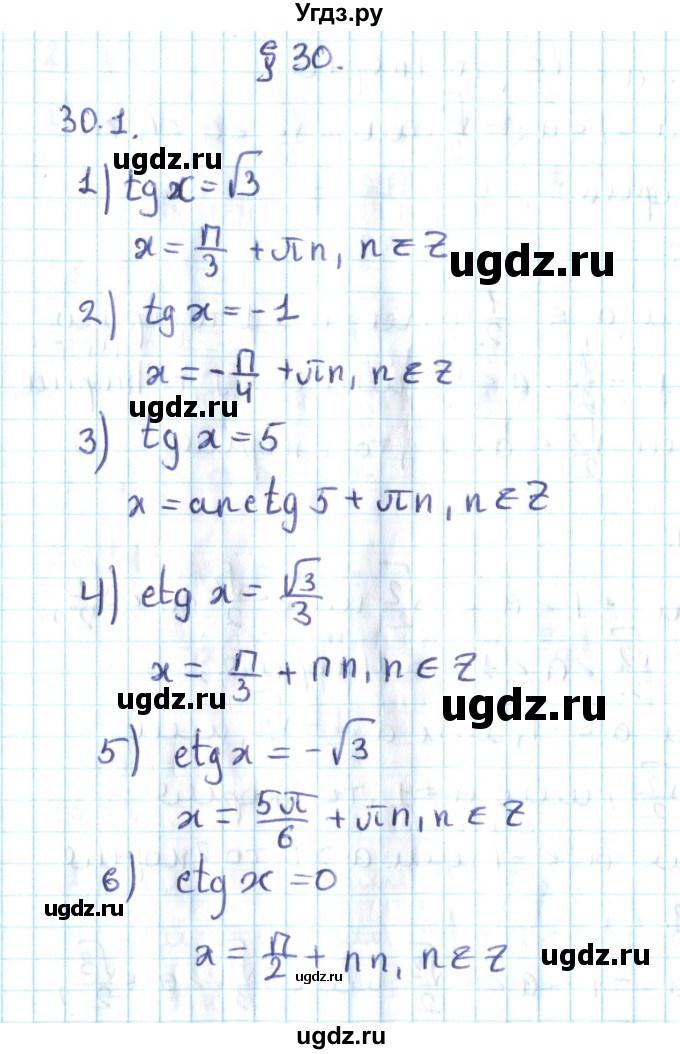 Угдз.ру
§ 30.
30.1.
ugdz.ru
1) tg x = √3
x = π/3 + πn, n ∈ Z
ugdz.ru
2) tg x = -1
x = -π/4 + πn, n ∈ Z
ugdz.ru
3) tg x = 5
x = arctg 5 + πn, n ∈ Z
4) ctg x = √3/3
x = π/3 + πn, n ∈ Z
ugdz.ru
ugdz.ru
5) ctg x = -√3
x = 5π/6 + πn, n ∈ Z
6) ctg x = 0
ugdz.ru
x = π/2 + πn, n ∈ Z
ugdz.ru
ugdz.ru
ugdz.ru